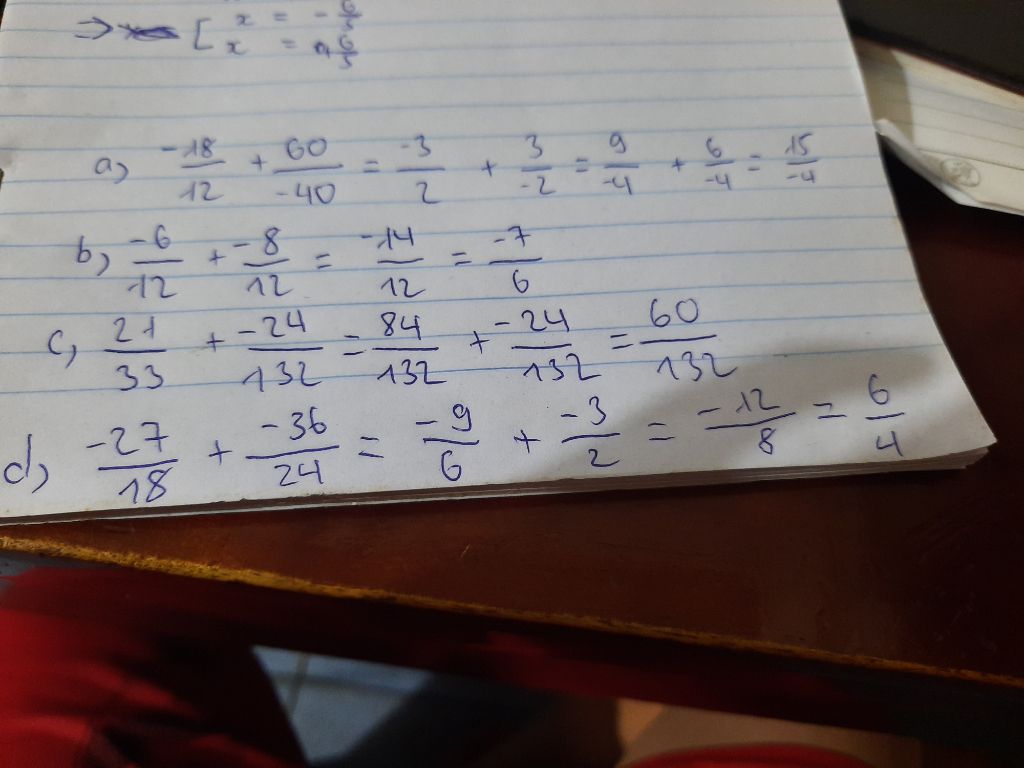 ⇒ [ x = -6/5
x = 6/5
a) -18/12 + 60/-40 = -3/2 + 3/-2 = 9/-4 + 6/-4 = 15/-4
b) -6/12 + -8/12 = -14/12 = -7/6
c) 21/33 + -24/132 = 84/132 + -24/132 = 60/132
d) -27/18 + -36/24 = -9/6 + -3/2 = -12/8 = 6/4